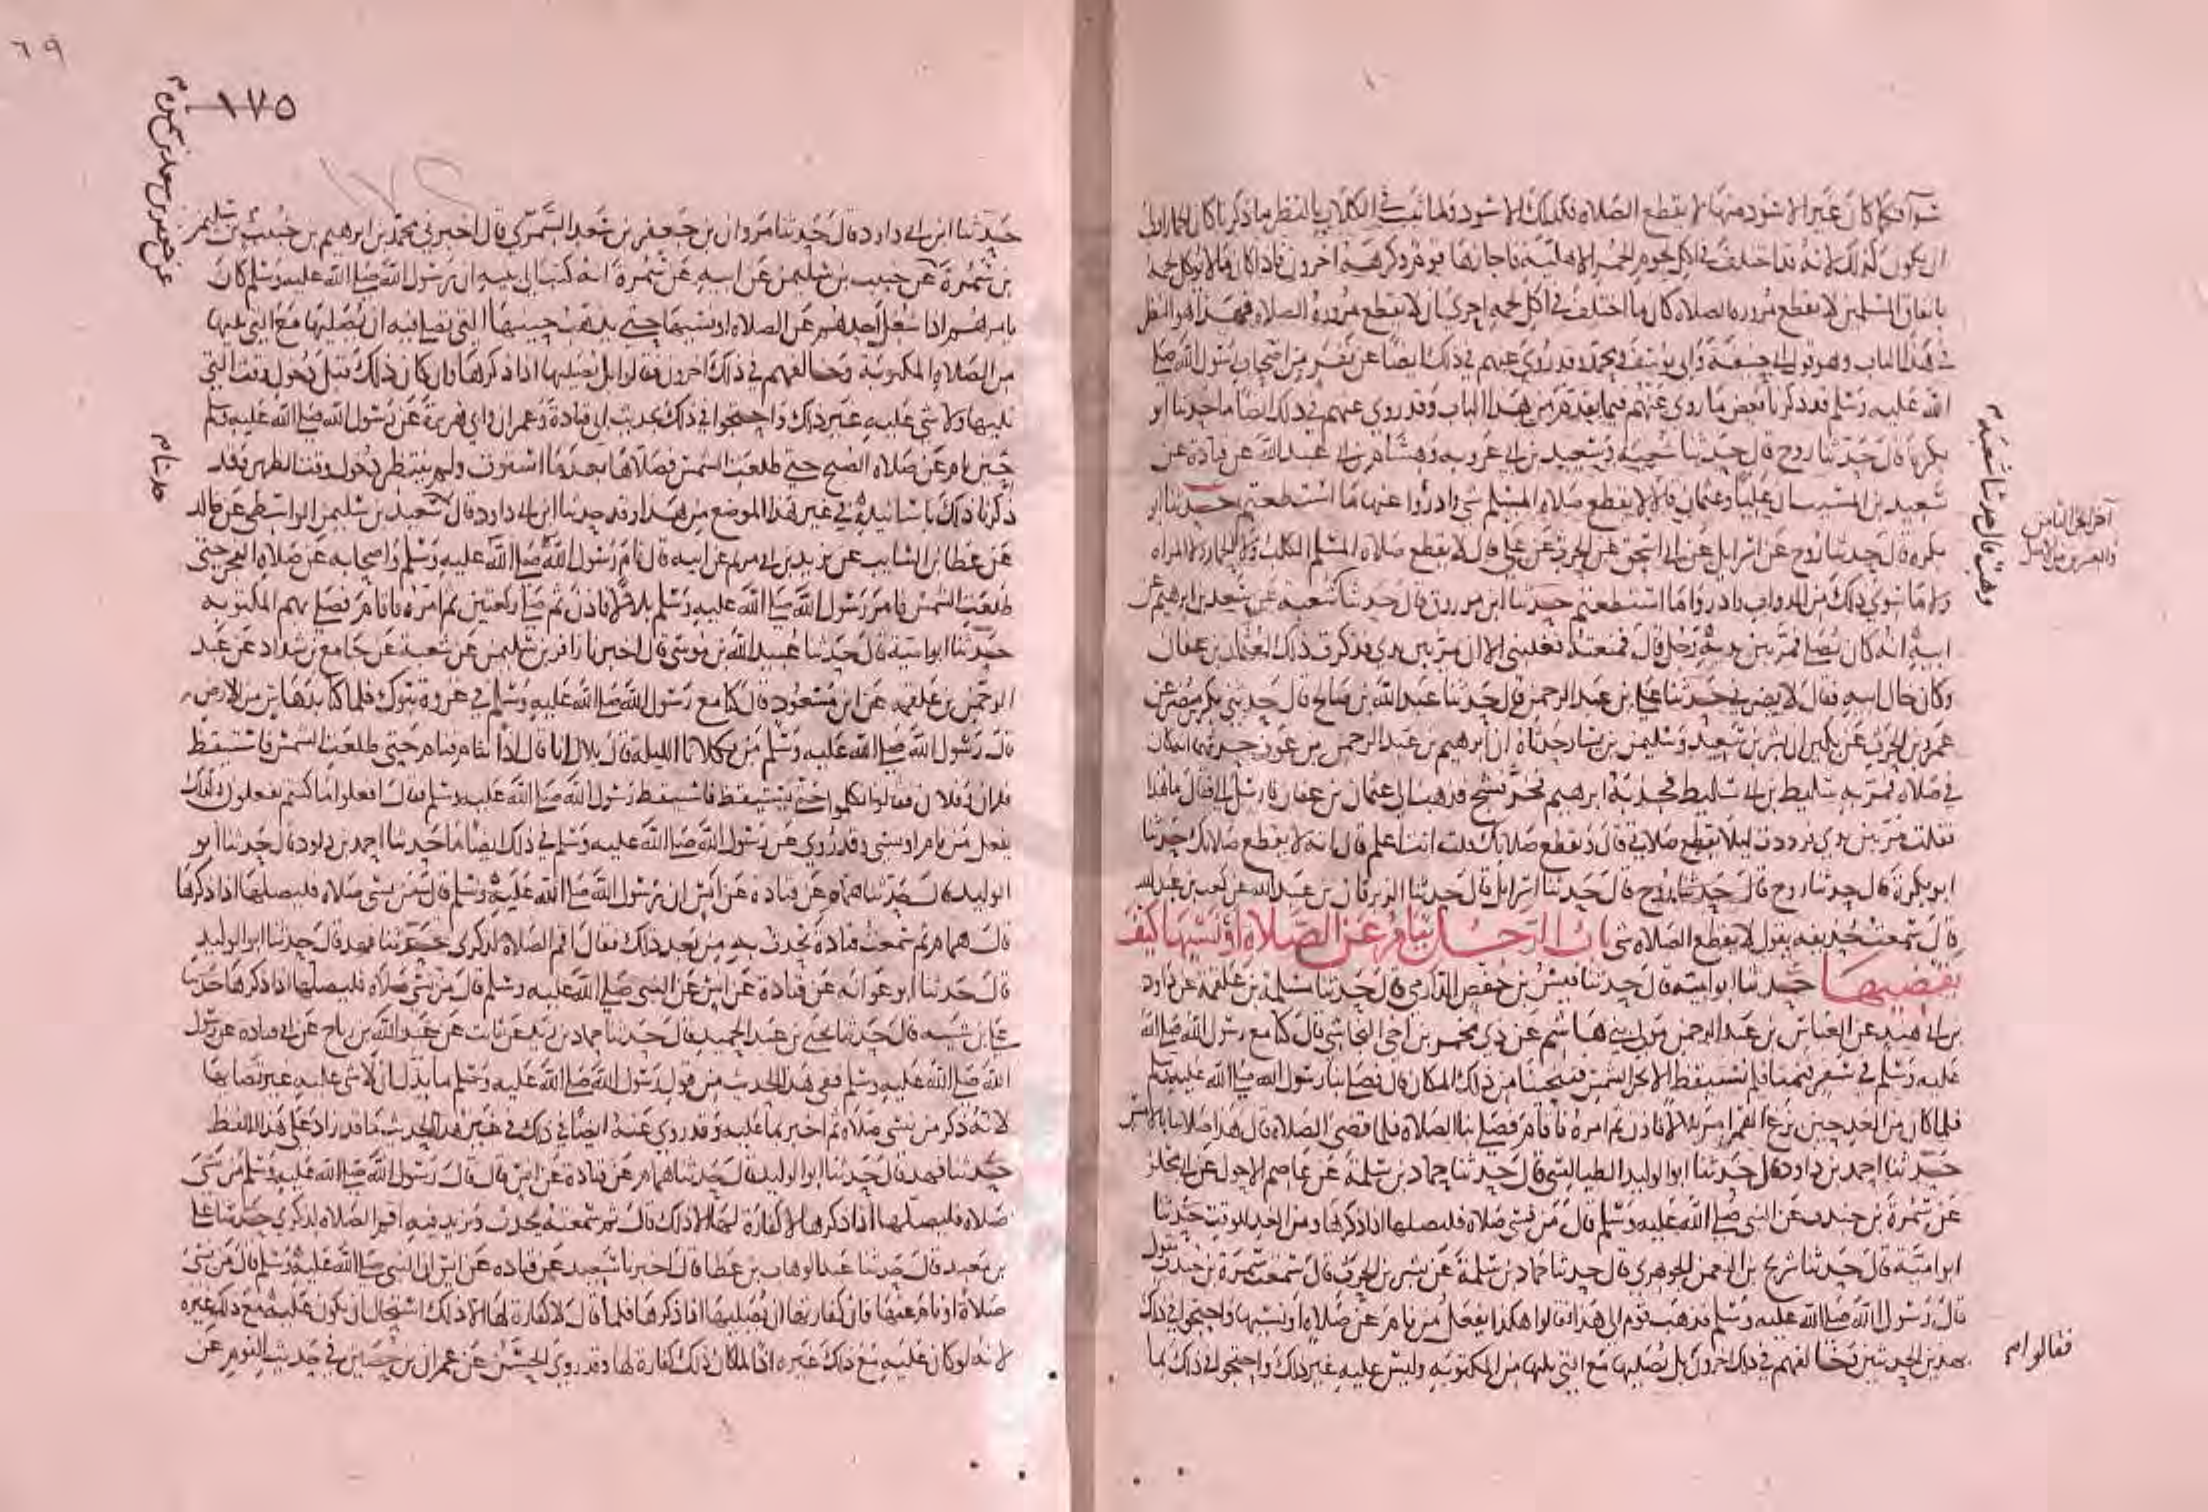 سوآ فكما كان غير الاسود منها لا يقطع الصلاه فكذلك الاسود ولما ثبت في الكلاب بالنظر ما ذكرنا كان الحمار اولى
ان يكون كذلك لانه قد اختلف في اكل لحوم الحمر الاهلية فاجازها قوم وكرهه اخرون فاذا كان ما لا يوكل لحمه
باتفاق المسلمين لا يقطع مروره الصلاه كان ما اختلف في اكل لحمه احرى ان لا يقطع مروره الصلاه فهذا هو النظر
في هذا الباب وهو قول ابي حنيفة وابي يوسف ومحمد وقد روي عنهم في ذلك ايضا عن نفر من اصحاب رسول الله صلى
الله عليه وسلم قد ذكرنا بعض ما روي عنهم فيما تقدم من هذا الباب وقد روي عنهم في ذلك ايضا ما حدثنا ابو
بكرة قال حدثنا روح قال حدثنا شعبة وسعيد بن ابي عروبه وهشام بن ابي عبد الله عن قتادة عن
سعيد بن المسيب ان عليا وعثمان قالا لا يقطع صلاه المسلم شي وادرؤا عنها ما استطعتم حدثنا ابو
بكره قال حدثنا روح عن اسرائيل عن ابي اسحق عن الحرث عن علي قال لا يقطع صلاة المسلم الكلب ولا الحمار ولا المراه
ولا ما سوى ذلك من الدواب وادروا ما استطعتم حدثنا ابن مرزوق قال حدثنا شعبه عن سعد بن ابرهيم عن
ابيه انه كان يصلي فمر بين يديه رجل قال فمنعته فغلبني الا ان يمر بين يدي فذكرت ذلك لعثمان بن عفان
وكان خال ابيه فقال لا يضرك حدثنا علي بن عبد الرحمن قال حدثنا عبد الله بن صالح قال حدثني بكر بن مضر عن
عمرو بن الحرث عن بكير ان بشر بن سعيد وسليمن بن يسار حدثاه ان ابرهيم بن عبد الرحمن بن عوف حدثهما انه كان
في صلاه فمر به سليط بن ابي سليط فجذبه ابرهيم فخر فشج فذهب الى عثمان بن عفان فارسل الي فقال ما هذا
فقلت مر بين يدي فرددته ليلا يقطع صلاتي قال ويقطع صلاتك قلت انت اعلم قال انه لا يقطع صلاتك حدثنا
ابو بكرة قال حدثنا روح قال حدثنا اسرائيل قال حدثنا الزبرقان بن عبد الله عن كعب بن عبد الله
قال سمعت حذيفه يقول لا يقطع الصلاه شي باب الرجل ينام عن الصلاة او نسيها كيف
يقضيها حدثنا ابو امية قال حدثنا قيس بن حفص الدارمي قال حدثنا مسلمة بن علقمه عن داود
بن ابي هند عن العباس بن عبد الرحمن مولى بني هاشم عن ذي مخمر بن اخي النجاشي قال كنا مع رسول الله صلى الله
عليه وسلم في سفر فنمنا فلم نستيقظ الا بحر الشمس فتنحينا من ذلك المكان قال فصلى بنا رسول الله صلى الله عليه وسلم
فلما كان من الغد حين بزغ القمر امر بلالا فاذن ثم امره فاقام فصلى بنا الصلاه فلما قضى الصلاة قال هذا صلاتنا بالامس
حدثنا احمد بن داود قال حدثنا ابو الوليد الطيالسي قال حدثنا حماد بن سلمة عن عاصم الاحول عن ابي مجلز
عن سمرة بن جندب عن النبي صلى الله عليه وسلم قال من نسي صلاه فليصلها اذا ذكرها ومن الغد للوقت حدثنا
ابو امية قال حدثنا شريح بن النعمن الجوهري قال حدثنا حماد بن سلمة عن بشر بن الحرث قال سمعت سمرة بن جندب يقول
قال رسول الله صلى الله عليه وسلم فذهب قوم الى هذا فقالوا هكذا يفعل من نام عن صلاه او نسيها واحتجوا في ذلك
بهذين الحديثين وخالفهم في ذلك اخرون بل يصليها مع التي يليها من المكتوبه وليس عليه غير ذلك واحتجوا في ذلك بما
فقالوا
آخر الجزء الثامن
والعشرين من الاصل
وهب قال حدثنا شعبه
٦٩
١٧٥
حدثنا ابن ابي داود قال حدثنا مروان بن جعفر بن سعد السمري قال اخبرني محمد بن ابرهيم بن خبيب بن سليمن
بن سمرة عن خبيب بن سليمن عن ابيه عن سمرة انه كتب الى بنيه ان رسول الله صلى الله عليه وسلم كان
يامرهم اذا شغل احدهم عن الصلاه او نسيها حتى يذهب حينها التي تصلى فيه ان يصليها مع التي يليها
من الصلاه المكتوبة وخالفهم في ذلك اخرون فقالوا بل يصليها اذا ذكرها وان كان ذلك قبل دخول وقت التي
تليها ولا شي عليه غير ذلك واحتجوا في ذلك بحديث ابي قتادة وعمران وابي هريرة عن رسول الله صلى الله عليه وسلم
حين نام عن صلاة الصبح حتى طلعت الشمس فصلاها بعد ما استوت ولم ينتظر دخول وقت الظهر وقد
ذكرنا ذلك باسانيده في غير هذا الموضع من هذا وقد حدثنا ابن ابي داود قال سعيد بن سليمن الواسطي عن خالد
عن عطا بن السايب عن بريد بن ابي مريم عن ابيه قال نام رسول الله صلى الله عليه وسلم واصحابه عن صلاة الفجر حتى
طلعت الشمس فامر رسول الله صلى الله عليه وسلم بلالا فاذن ثم صلى ركعتين ثم امره فاقام فصلى بهم المكتوبه
حدثنا ابو امية قال حدثنا عبيد الله بن موسى قال اخبرنا زافر بن سليمن عن شعبة عن جامع بن شداد عن عبد
الرحمن بن علقمه عن ابن مسعود قال كنا مع رسول الله صلى الله عليه وسلم في غزوة تبوك فلما كنا بدهاس من الارض
قال رسول الله صلى الله عليه وسلم من يكلانا الليلة قال بلال انا قال اذا تنام فنام حتى طلعت الشمس فاستيقظ
فلان وفلان فقالوا تكلموا حتى يستيقظ فاستيقظ رسول الله صلى الله عليه وسلم فقال افعلوا ما كنتم تفعلون وكذلك
يفعل من نام او نسي وقد روي عن رسول الله صلى الله عليه وسلم في ذلك ايضا ما حدثنا احمد بن داود قال حدثنا ابو
الوليد قال حدثنا همام عن قتادة عن انس ان رسول الله صلى الله عليه وسلم قال من نسي صلاه فليصلها اذا ذكرها
قال همام ثم سمعت قتادة يحدث به من بعد ذلك فقال اقم الصلاة لذكري حدثنا فهد قال حدثنا ابو الوليد
قال حدثنا ابو عوانه عن قتادة عن انس عن النبي صلى الله عليه وسلم قال من نسي صلاه فليصلها اذا ذكرها حدثنا
علي بن شيبه قال حدثنا يحيى بن عبد الحميد قال حدثنا حماد بن زيد عن ثابت عن عبد الله بن رباح عن ابي قتاده عن رسول
الله صلى الله عليه وسلم ففي هذا الحديث من قول رسول الله صلى الله عليه وسلم ما يدل ان لا شي عليه غير قضايها
لانه ذكر من نسي صلاه ثم اخبر بما عليه وقد روي عنه ايضا في ذلك في غير هذا الحديث ما قد زاد على هذا اللفظ
حدثنا فهد قال حدثنا ابو الوليد قال حدثنا همام عن قتادة عن انس قال قال رسول الله صلى الله عليه وسلم من نسي
صلاه فليصلها اذا ذكرها لا كفارة لها الا ذلك قال ثم سمعته يحدث ويزيد فيه اقم الصلاه لذكري حدثنا علي
بن معبد قال حدثنا عبد الوهاب بن عطا قال اخبرنا سعيد عن قتاده عن انس ان النبي صلى الله عليه وسلم قال من نسي
صلاة او نام عنها فان كفارتها ان يصليها اذا ذكرها فلما قال لا كفارة لها الا ذلك استحال ان يكون عليه مع ذلك غيره
لانه لو كان عليه مع ذلك غيره اذا لما كان ذلك كفارة لها وقد روى الحسن عن عمران بن حصين في حديث النوم عن